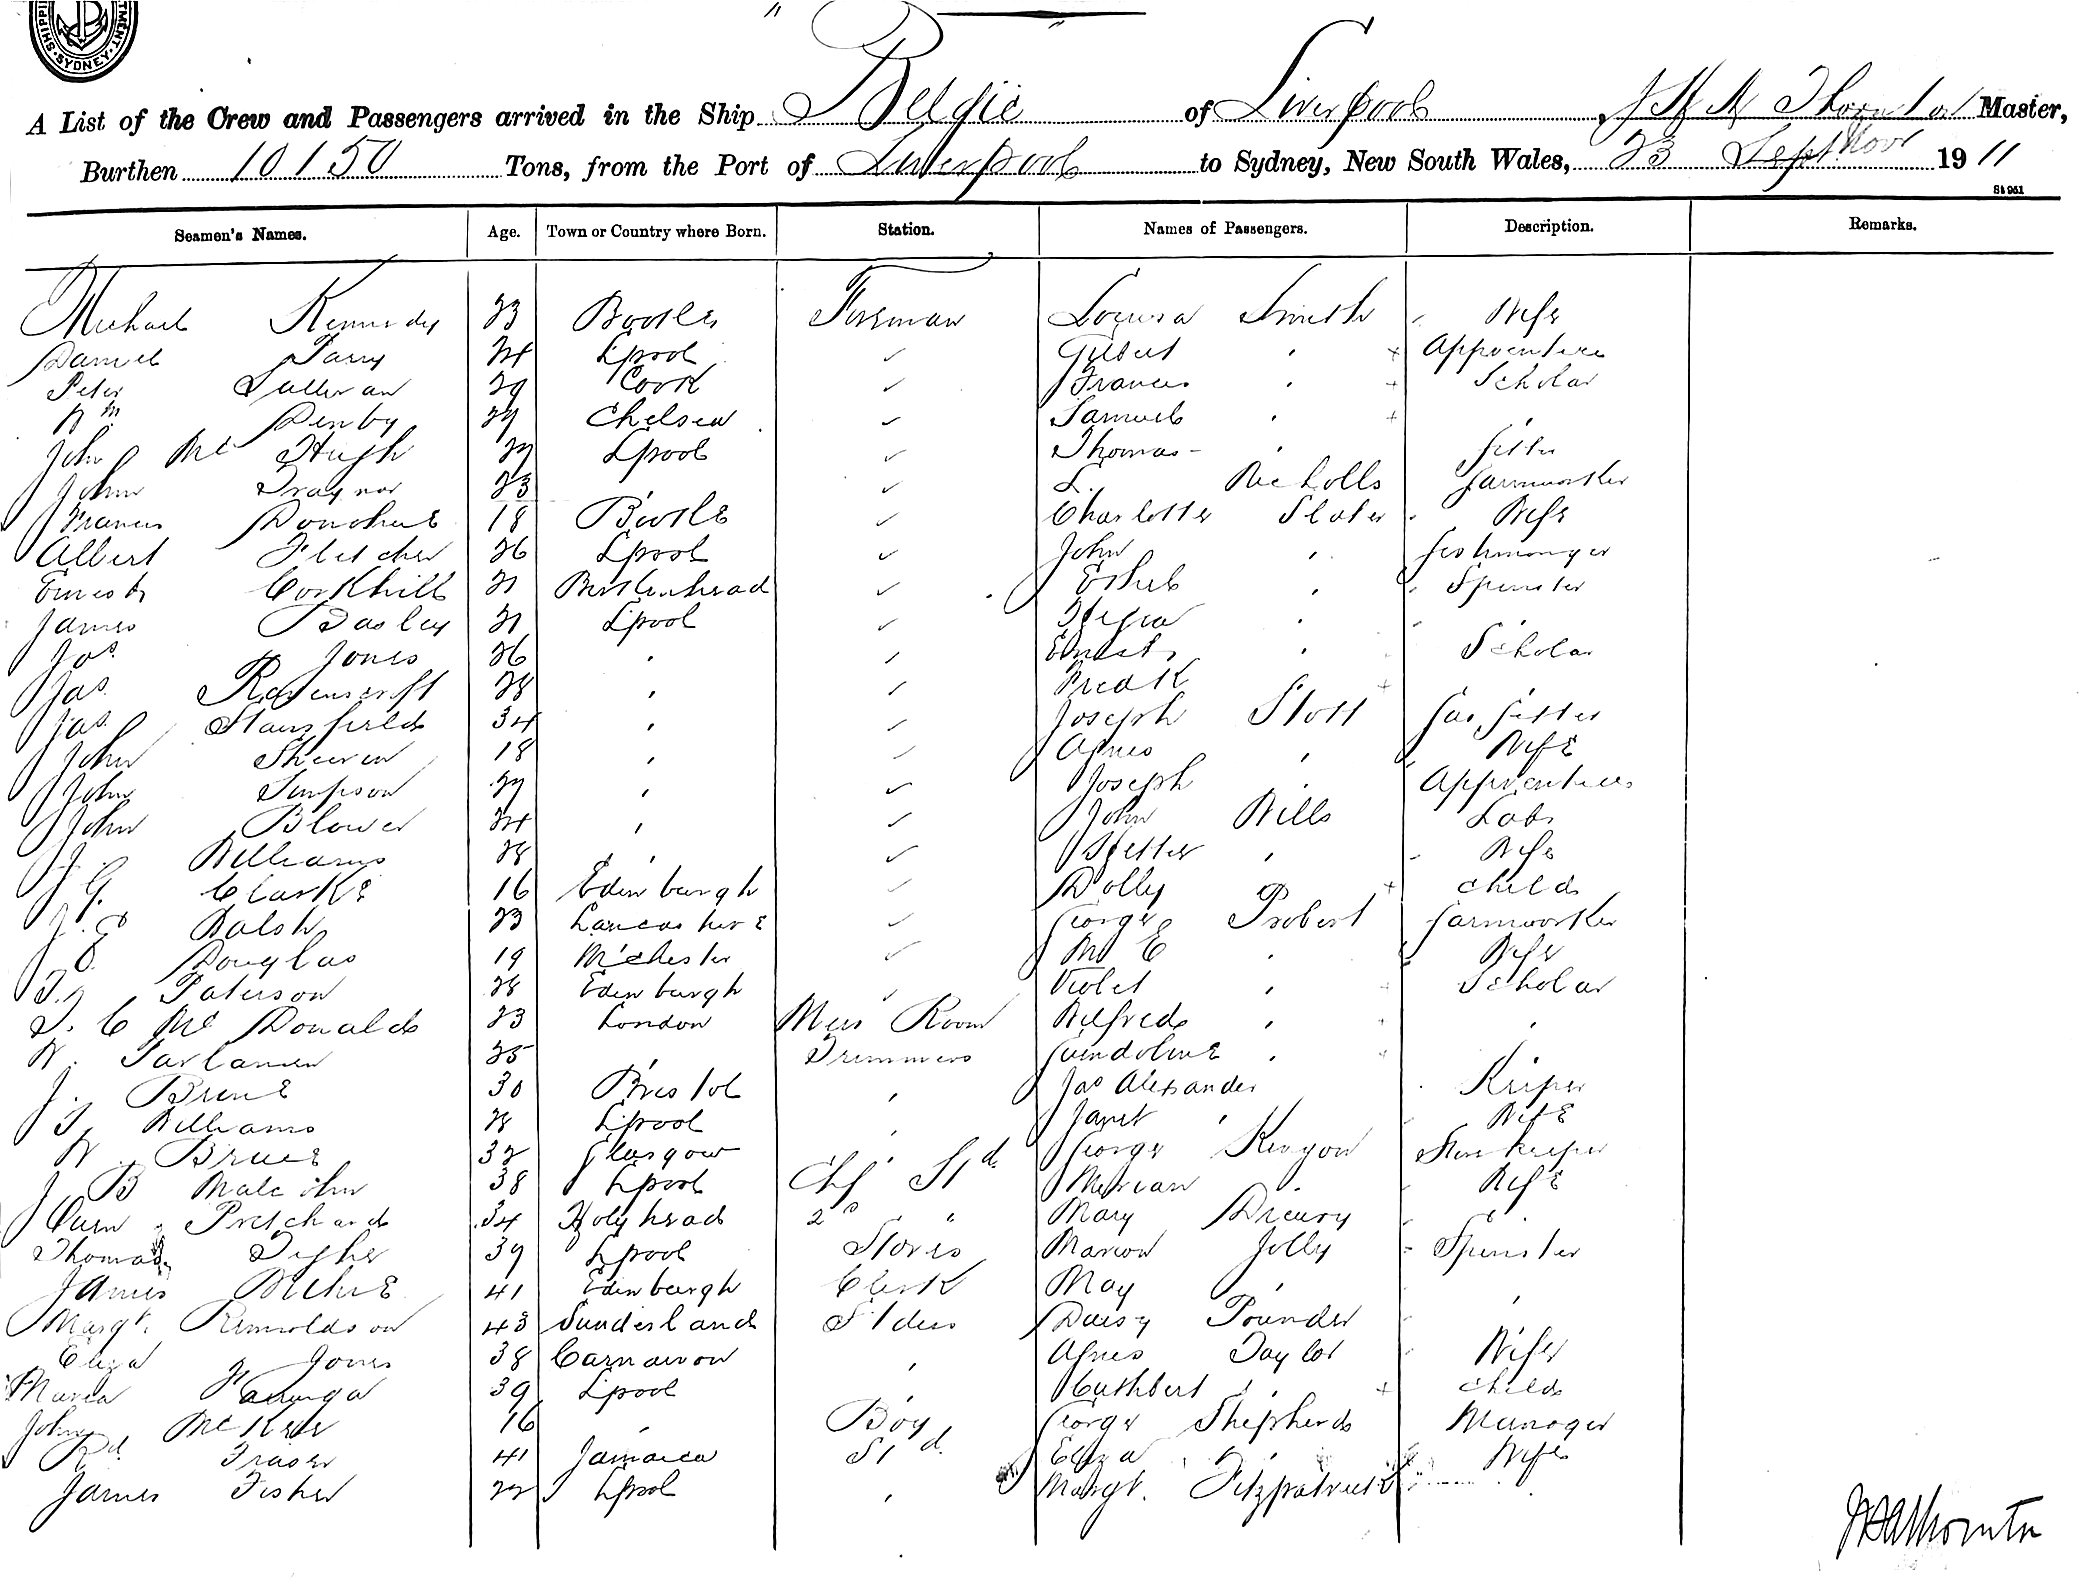 SHIPPI TMENT · SYDNEY ·
"
A List of the Crew and Passengers arrived in the Ship Belgic of Liverpool J H A Thornton Master,
Burthen 10150 Tons, from the Port of Liverpool to Sydney, New South Wales, 23 Sept Nov 1911
St 951
Seamen's Names. Age. Town or Country where Born. Station. Names of Passengers. Description. Remarks.
Michael Kennedy 23 Bootle Fireman Louisa Smith Wife
Daniel Parry 24 Lpool ✓ Gilbert " + Apprentice
Peter Sullivan 29 Cork ✓ Francis " + Scholar
Wm Denby 29 Chelsea ✓ Samuel " + "
John Mc Hugh 27 Lpool ✓ Thomas " fitter
John Traynor 23 " ✓ L. Nicholls farmworker
Francis Donohue 18 Bootle ✓ Charlotte Slater Wife
Albert Fletcher 26 Lpool ✓ John " fishmonger
Ernest Corkhill 21 Birkenhead ✓ Ethel " Spinster
James Basley 21 Lpool ✓ "
Jos. Jones 26 " ✓ Ernest " Scholar
Jas. Ravenscroft 28 " ✓ Fredk +
Jas. Stansfield 34 " ✓ Joseph Stott Gas fitter
John 18 " ✓ Agnes " Wife
John Simpson 27 " ✓ Joseph " Apprentice
John Blower 24 " ✓ John Wills Labr
Williams 28 " ✓ Hetter " Wife
J. G. Clarke 16 Edinburgh ✓ Dolly " + child
Walsh 23 Lancashire ✓ George Probert farmworker
J. E. Douglas 19 M'chester ✓ M E " Wife
Paterson 28 Edinburgh ✓ Violet " Scholar
J. C Mc Donald 23 London Mess Room Wilfred " "
W. 25 " Trimmers Gwendoline " "
J. 30 Bristol " Jas Alexander Keeper
J. Williams 28 Lpool " Janet " Wife
W. Bruce 32 Glasgow " George Kenyon Storekeeper
J B Malcolm 38 Lpool Chf Std. Miriam " Wife
Owen Pritchard 34 Holyhead 2nd " Mary Drewry "
Thomas Tighe 39 Lpool Stores Marion Jolly Spinster
James 41 Edinburgh Clerk May " "
Margt. Reinoldson 43 Sunderland Stdess Daisy Pounder
Eliza Jones 38 Carnarvon " Agnes Taylor Wife
Maria 39 Lpool " Cuthbert " + child
John Mc Kee 16 " Boy George Shepherd Manager
Rd. Fraser 41 Jamaica Std. Eliza " Wife
James Fisher 22 Lpool " Margt. Fitzpatrick
JHAThornton